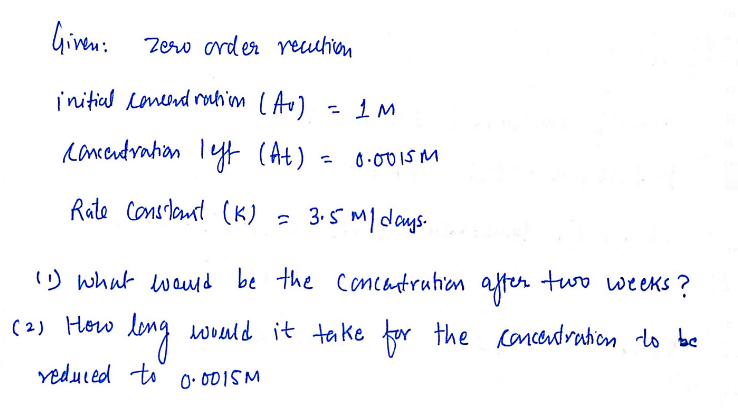 Given: Zero order reaction
initial concentration (A0) = 1 M
concentration left (At) = 0.0015M
Rate Constant (K) = 3.5 M/days.
(1) what would be the concentration after two weeks?
(2) How long would it take for the concentration to be
reduced to 0.0015M